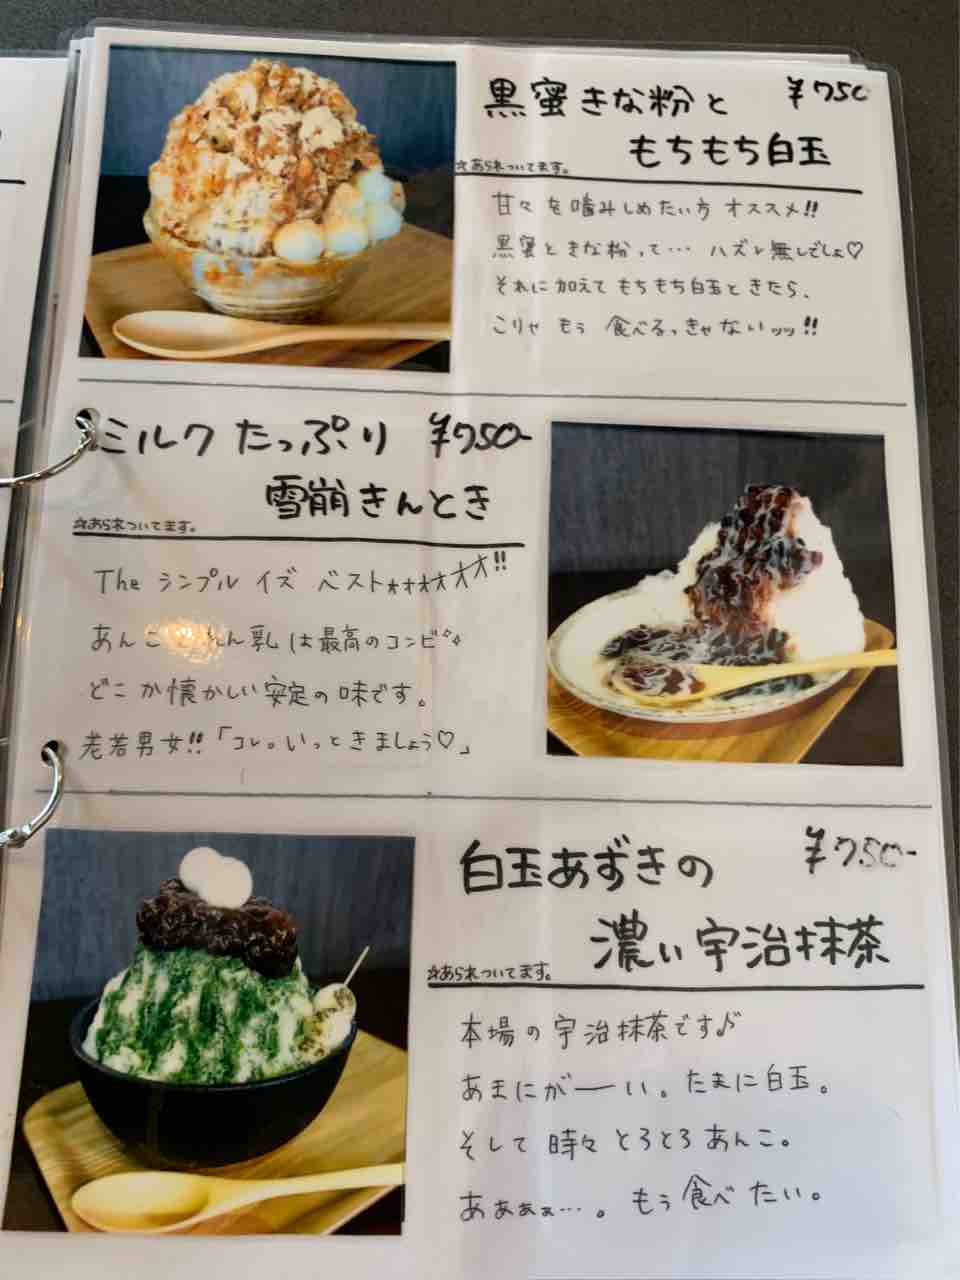 黒蜜きな粉と ¥750
もちもち白玉
☆あられついてます。
甘々を噛みしめたい方 オススメ!!
黒蜜ときな粉って… ハズレ無しでしょ♡
それに加えてもちもち白玉ときたら、
こりゃ もぅ 食べるっきゃないッッ!!
ミルクたっぷり ¥750-
雪崩きんとき
☆あられついてます。
The シンプル イズ ベストォォォォォォ!!
あんこ れん乳は最高のコンビ
どこか懐かしい安定の味です。
老若男女!!「コレ。いっときましょう♡」
白玉あずきの ¥750-
濃い宇治抹茶
☆あられついてます。
本場の宇治抹茶です♪
あまにがーい。たまに白玉。
そして時々とろとろあんこ。
あぁぁぁ…。もぅ食べたい。